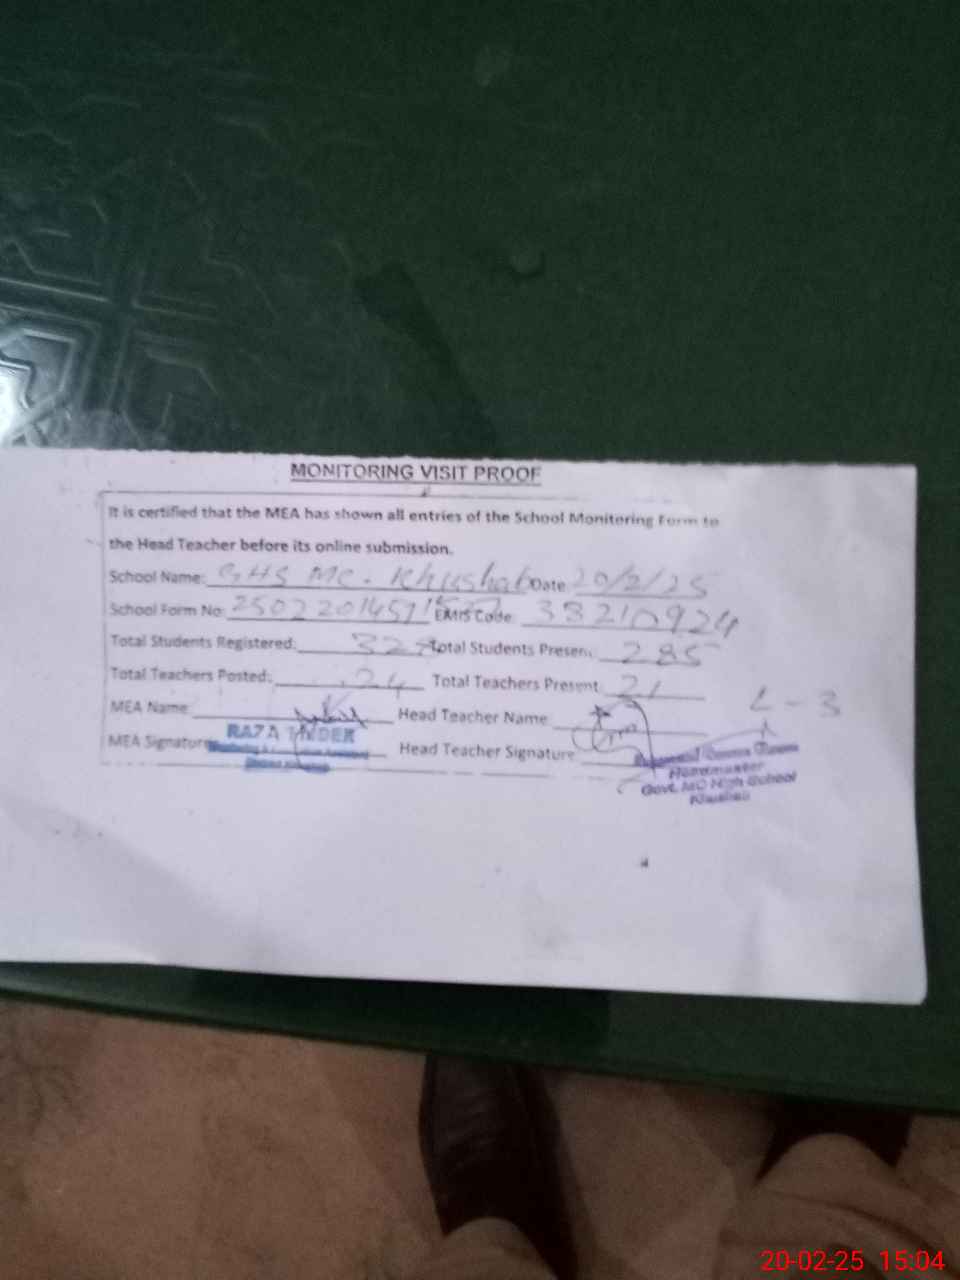 MONITORING VISIT PROOF
It is certified that the MEA has shown all entries of the School Monitoring Form to
the Head Teacher before its online submission.
School Name: GHS MC. Khushab Date 20/2/25
School Form No: 2502201457 EMIS Code: 38210924
Total Students Registered: 32 Total Students Present 285
Total Teachers Posted: 24 Total Teachers Present 21
L-3
MEA Name Head Teacher Name
MEA Signature RAZA Head Teacher Signature
Headmaster
Govt. MC High School
Khushab
20-02-25 15:04